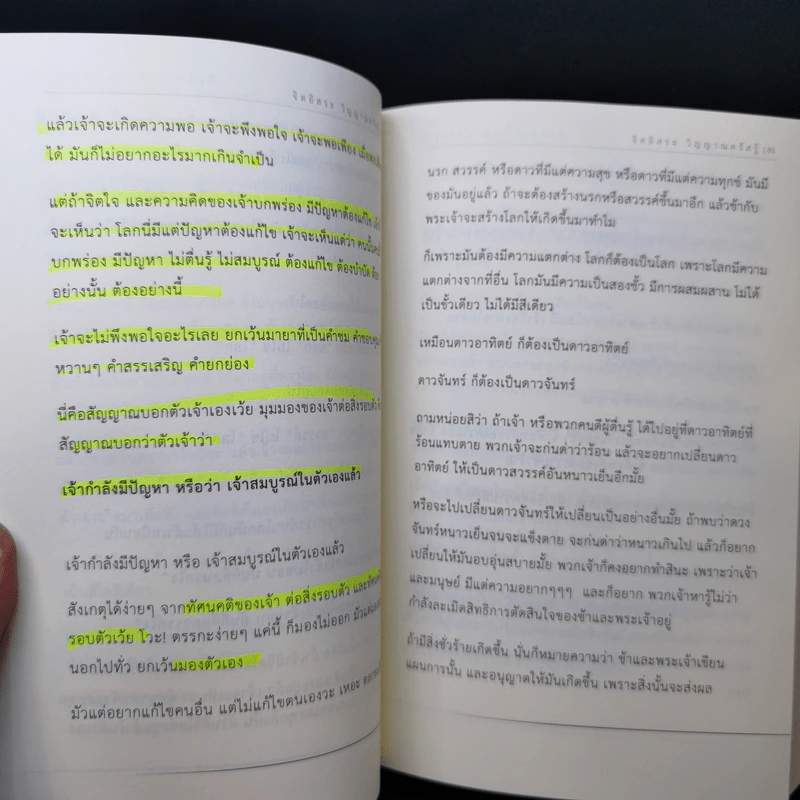 จิตอิสระ วิญญาณ
แล้วเจ้าจะเกิดความพอ เจ้าจะพึงพอใจ เจ้าจะพอเพียง
ได้ มันก็ไม่อยากอะไรมากเกินจำเป็น
แต่ถ้าจิตใจ และความคิดของเจ้าบกพร่อง มีปัญหาต้องแก้ไข
จะเห็นว่า โลกนี้มีแต่ปัญหาต้องแก้ไข เจ้าจะเห็นแต่ว่า
บกพร่อง มีปัญหา ไม่ตื่นรู้ ไม่สมบูรณ์ ต้องแก้ไข ต้องบำบัด
อย่างนั้น ต้องอย่างนี้
เจ้าจะไม่พึงพอใจอะไรเลย ยกเว้นมายาที่เป็นคำชม
หวานๆ คำสรรเสริญ คำยกย่อง
นี่คือสัญญาณบอกตัวเจ้าเองเว้ย มุมมองของเจ้าต่อสิ่งรอบตัว
สัญญาณบอกว่าตัวเจ้าว่า
เจ้ากำลังมีปัญหา หรือว่า เจ้าสมบูรณ์ในตัวเองแล้ว
เจ้ากำลังมีปัญหา หรือ เจ้าสมบูรณ์ในตัวเองแล้ว
สังเกตุได้ง่ายๆ จากทัศนคติของเจ้า ต่อสิ่งรอบตัว
รอบตัวเว้ย โวะ! ตรรกะง่ายๆ แค่นี้ ก็มองไม่ออก
นอกไปทั่ว ยกเว้นมองตัวเอง
มัวแต่อยากแก้ไขคนอื่น แต่ไม่แก้ไขตนเองวะ เหอะ
จิตอิสระ วิญญาณศรีสรู้
นรก สวรรค์ หรือดาวที่มีแต่ความสุข หรือดาวที่มีแต่ความทุกข์ มันมี
ของมันอยู่แล้ว ถ้าจะต้องสร้างนรกหรือสวรรค์ขึ้นมาอีก แล้วข้ากับ
พระเจ้าจะสร้างโลกให้เกิดขึ้นมาทำไม
ก็เพราะมันต้องมีความแตกต่าง โลกก็ต้องเป็นโลก เพราะโลกมีความ
แตกต่างจากที่อื่น โลกมันมีความเป็นสองขั้ว มีการผสมผสาน ไม่ได้
เป็นขั้วเดียว ไม่ได้มีสีเดียว
เหมือนดาวอาทิตย์ ก็ต้องเป็นดาวอาทิตย์
ดาวจันทร์ ก็ต้องเป็นดาวจันทร์
ถามหน่อยสิว่า ถ้าเจ้า หรือพวกคนดีผู้ตื่นรู้ ได้ไปอยู่ที่ดาวอาทิตย์ที่
ร้อนแทบตาย พวกเจ้าจะก่นด่าว่าร้อน แล้วจะอยากเปลี่ยนดาว
อาทิตย์ ให้เป็นดาวสวรรค์อันหนาวเย็นอีกมั้ย
หรือจะไปเปลี่ยนดาวจันทร์ให้เปลี่ยนเป็นอย่างอื่นมั้ย ถ้าพบว่าดวง
จันทร์หนาวเย็นจนจะแข็งตาย จะก่นด่าว่าหนาวเกินไป แล้วก็อยาก
เปลี่ยนให้มันอบอุ่นสบายมั้ย พวกเจ้าก็คงอยากทำสินะ เพราะว่าเจ้า
และมนุษย์ มีแต่ความอยากๆๆๆ และก็อยาก พวกเจ้าหารู้ไม่ว่า
กำลังละเมิดสิทธิการตัดสินใจของข้าและพระเจ้าอยู่
ถ้ามีสิ่งชั่วร้ายเกิดขึ้น นั่นก็หมายความว่า ข้าและพระเจ้าเขียน
แผนการนั้น และอนุญาตให้มันเกิดขึ้น เพราะสิ่งนั้นจะส่งผล